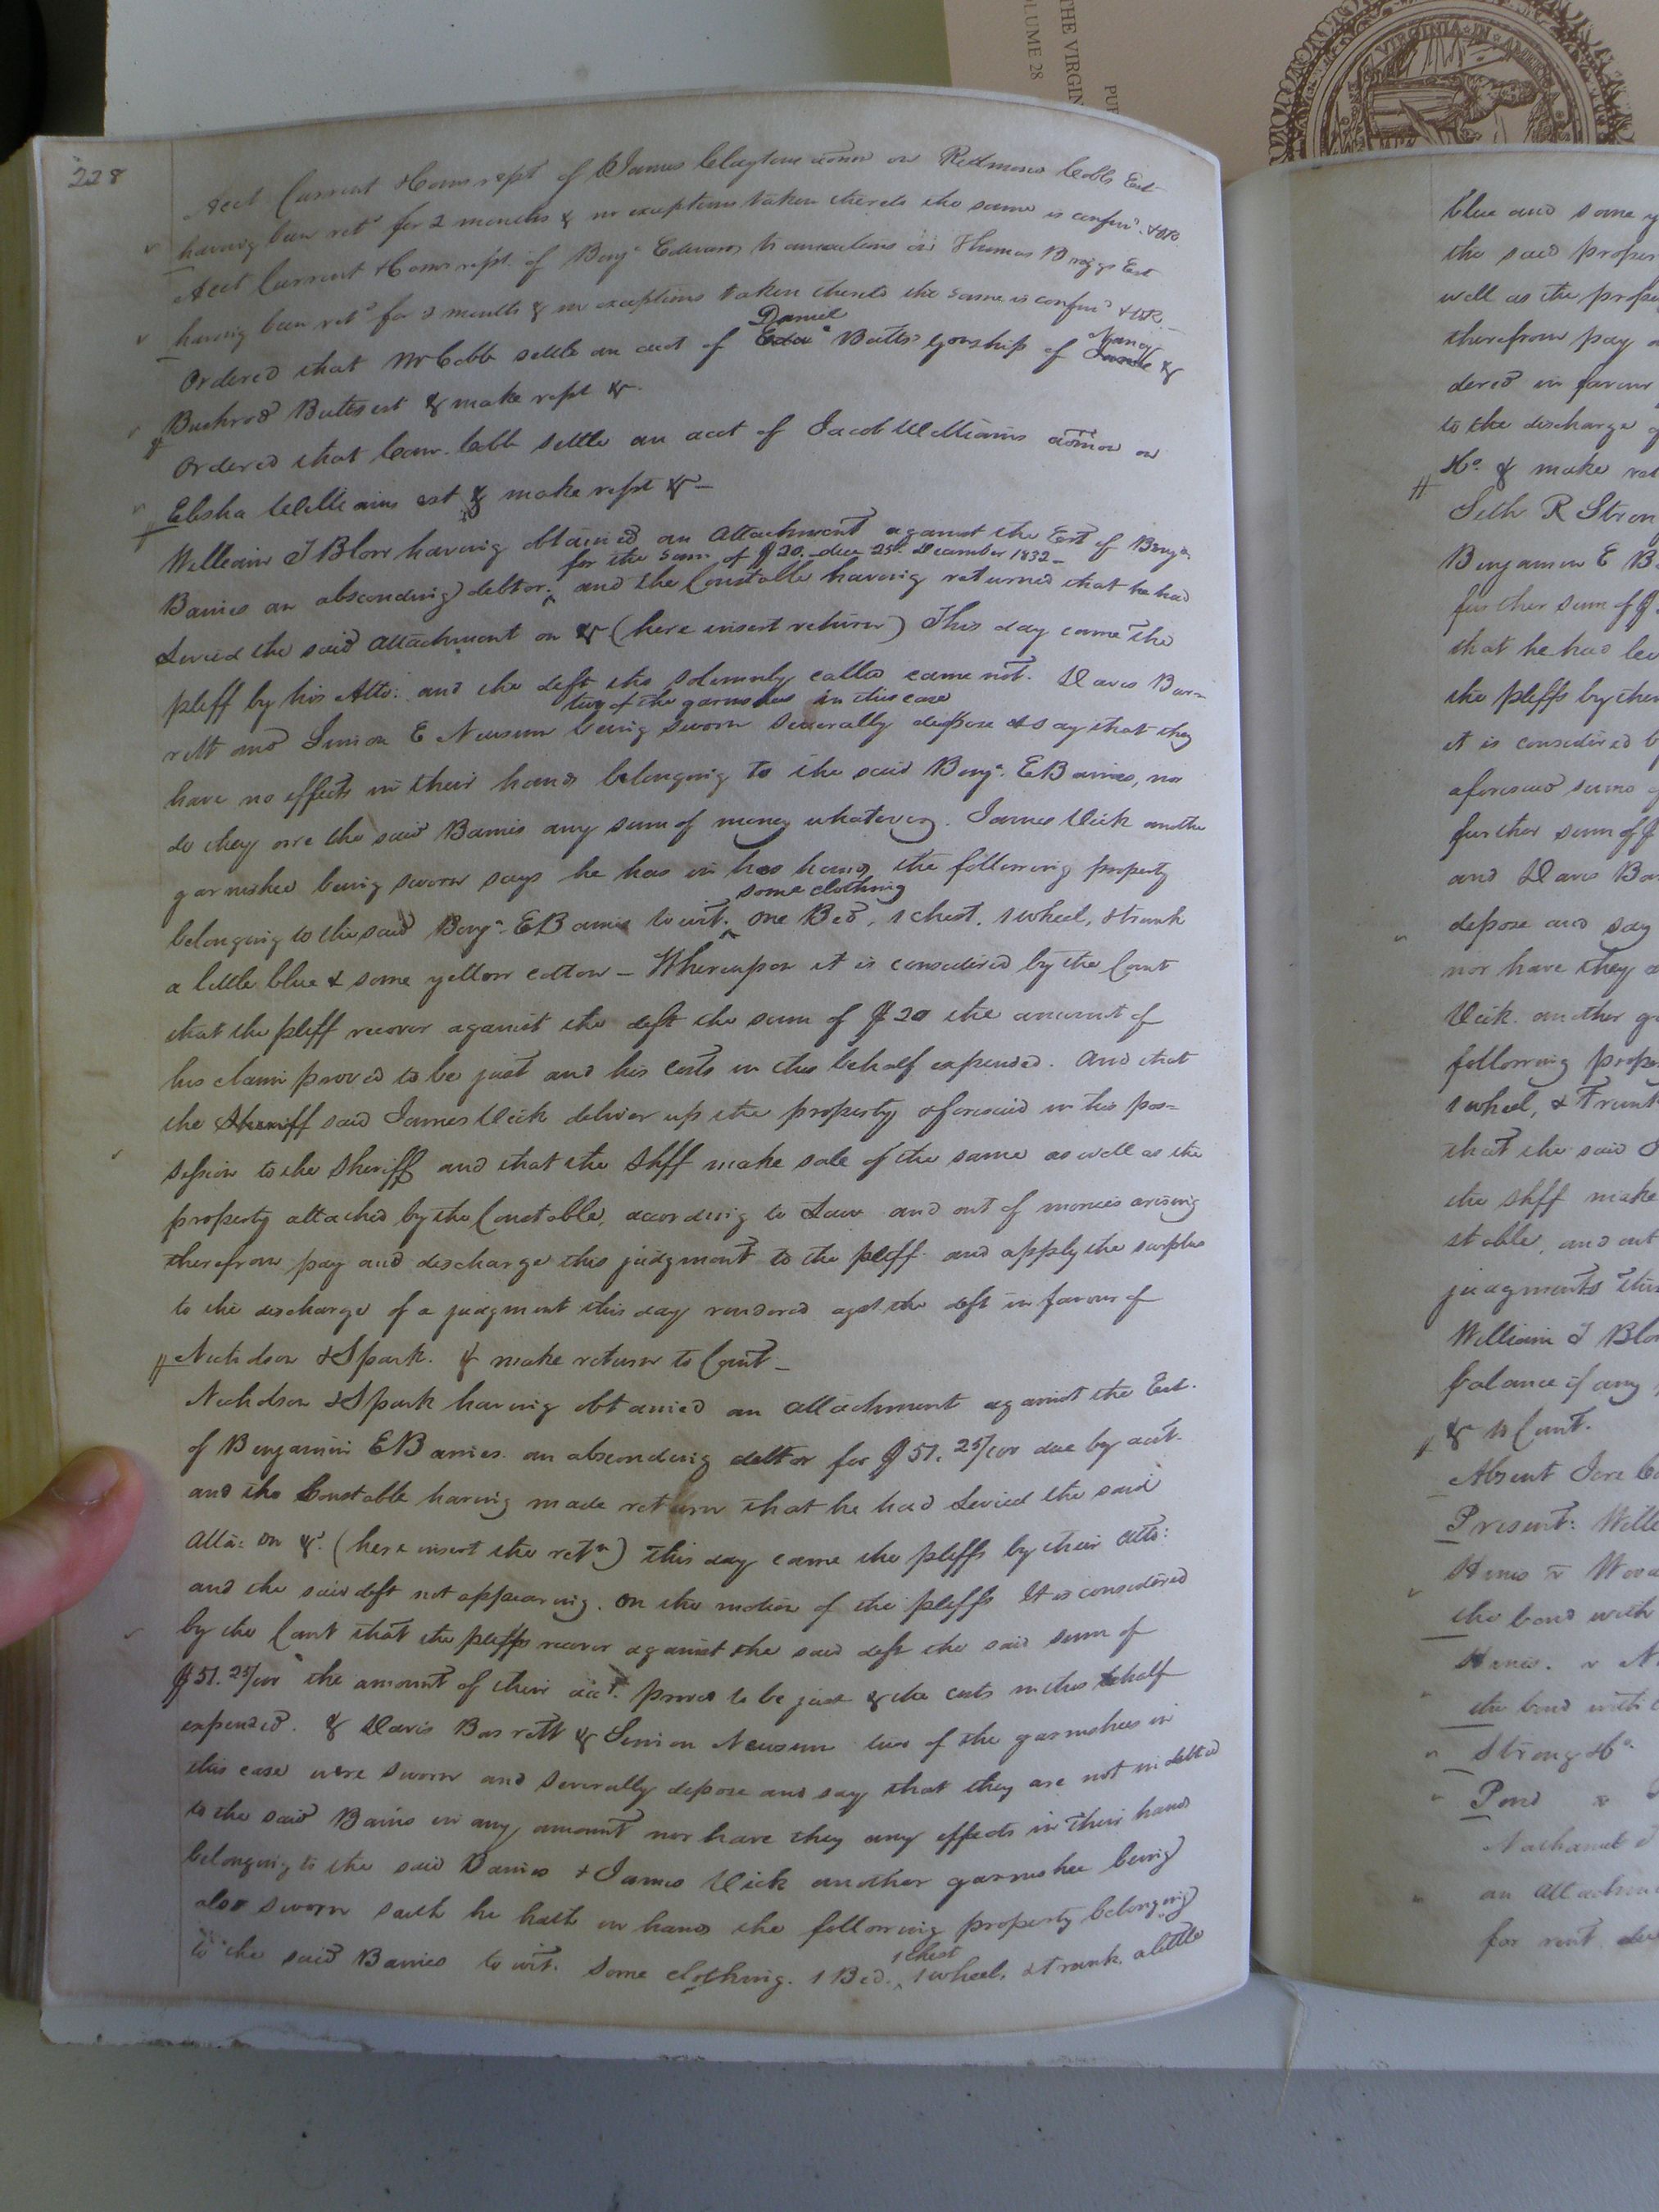 228
Acct Current & Coms rept of James Clayton admor on Redmond Cobbs Est
having been retd for 2 months & no exceptions taken thereto the same is confirmd & OR.
Acct Current & Coms rept. of Benja Edwards transactions on Thomas Briggs Est
having been retd for 2 months & no exceptions taken thereto the same is confirmd & OR.
Daniel
Nancy
Ordered that Mr Cobb settle an acct of Butts' gonship of &
Bushrod Butts est & make rept &.
Ordered that Com. Cobb settle an acct of Jacob Williams admor on
Elisha Williams est & make rept & –
William J Blow having obtained an Attachment against the Est of Benja
for the sum of $20. due 25th. December 1832 –
Barnes an absconding debtor. ^ and the Constable having returned that he had
Levied the said attachment on & (here insert return) This day came the
pleff by his Atto: and the deft tho solemnly called came not. Davis Bar=
two of the garnishees in this case
rett and Simion E Newsum being sworn severally depose & say that they
have no effects in their hands belonging to the said Benja. E Barnes, nor
do they owe the said Barnes any sum of money whatever. James Vick another
garnishee being sworn says he has in his hands the following property
some clothing
belonging to the said Benja. E Barnes to wit. ^ one Bed, 1 chest. 1 wheel, & trunk
a little blue & some yellow cotton – Whereupon it is considered by the Court
that the pleff recover against the deft the sum of $20 the amount of
his claim proved to be just and his costs in this behalf expended. And that
the Sheriff said James Vick deliver up the property aforesaid in his pos=
session to the Sheriff and that the Shff make sale of the same as well as the
property attached by the Constable, according to Law and out of monies arising
therefrom pay and discharge this judgment to the pleff and apply the surplus
to the discharge of a judgment this day rendered agst the deft in favour of
Nicholson & Spark. & make return to Court –
Nicholson & Spark having obtained an attachment against the Est.
of Benjamin E Barnes. an absconding debtor for $51. 25/100 due by acct.
and the Constable having made return that he had Levied the said
Atta: on &. (here insert the retn) this day came the pleffs by their atto:
and the said deft not appearing. On the motion of the pleffs It is considered
by the Court that the pleffs recover against the said deft the said sum of
$51. 25/100 the amount of their acct. proved to be just & the costs in this behalf
expended. & Davis Barrett & Simion Newsum two of the garnishees in
this case were sworn and severally depose and say that they are not indebted
to the said Barnes in any amount nor have they any effects in their hands
belonging to the said Barnes & James Vick another garnishee being
also sworn saith he hath in hands the following property belonging
1 chest
to the said Barnes to wit. Some clothing. 1 Bed. ^ 1 wheel, & trunk. a little
blue and some y
the said proper
well as the prope
therefrom pay a
dered in favour
to the discharge o
& make ret
Seth R Stron
Benjamin E B
further sum of $
that he had lev
the pleffs by their
it is considered b
aforesaid sums
further sum of $
and Davis Bar
depose and say
nor have they a
Vick. another g
following prope
1 wheel, & Trunk
that the said J
the Shff make
stable, and out
judgments this
William J Blo
balance if any
& to Court.
Absent Jere C
Present: Will
Hines v Wood
the bond with
Hines. v N
the bond with
Strong &
Pond v
Nathaniel
an Attachm
for rent due
THE VIRGIN
VOLUME 28
PU
VIRGINIA IN A